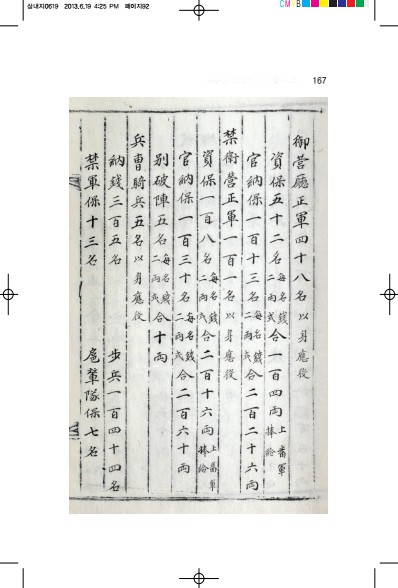 삼내지0619 2013.6.19 4:25 PM 페이지92
CM YB
167
御營廳正軍四十八名以身應役
資保五十二名每名錢二兩式合一百四兩上番軍捧給
官納保一百十三名每名錢二兩式合二百二十六兩
禁衛營正軍一百一名以身應役
資保一百八名每名錢二兩式合二百十六兩上番軍捧給
官納保一百三十名每名錢二兩式合二百六十兩
別破陣五名每名錢二兩式合十兩
兵曹騎兵五名以身應役
納錢三百五名 步兵一百四十四名
禁軍保十三名 扈輦隊保七名